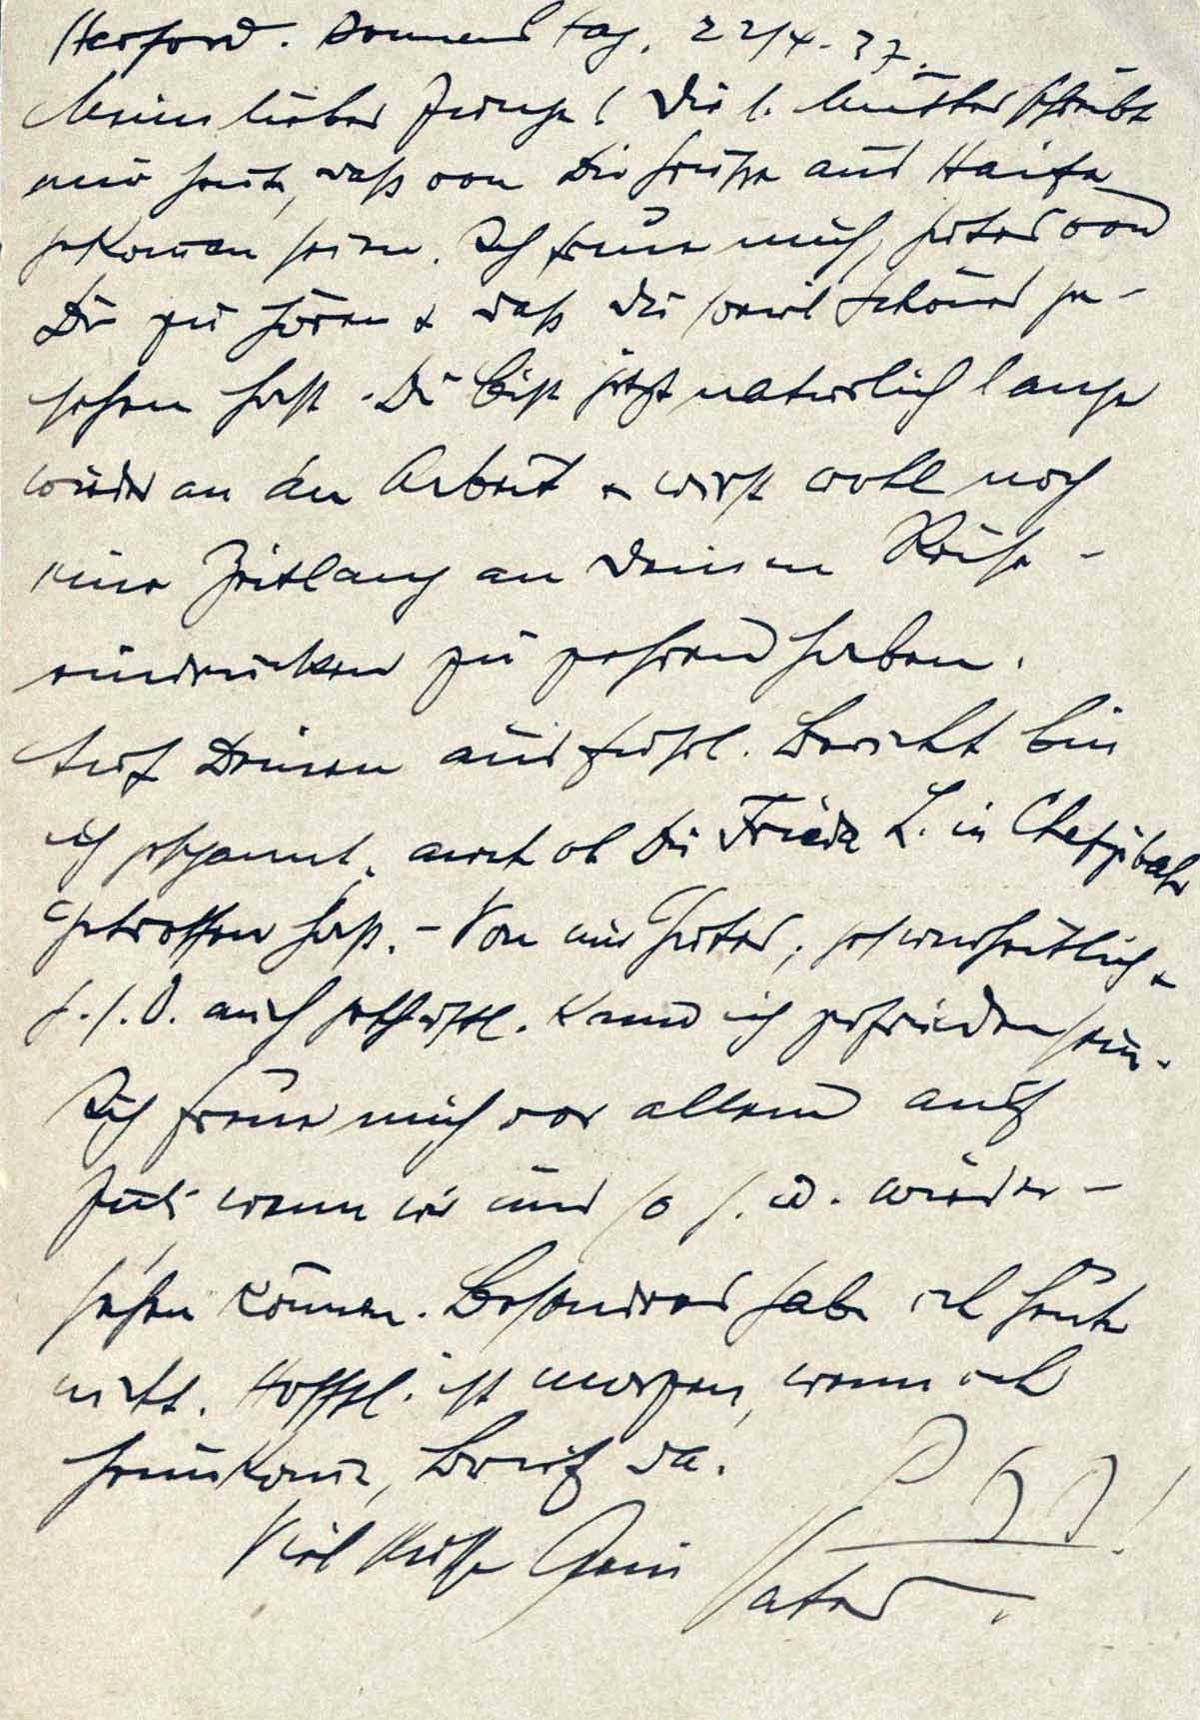 Herford. Donnerstag, 22/4. 37.
Mein lieber Junge! Die l. Mutter schreibt
mir heute, daß von Dir Grüße aus Haifa
gekomen seien. Ich freue mich, gutes von
Dir zu hören & daß Du soviel Schönes ge-
sehen hast. Du bist jetzt natürlich lange
wieder an der Arbeit & wirst wohl noch
eine Zeitlang an Deinen Reise-
eindrücken zu zehren haben.
Auf Deinen ausführl. Bericht bin
ich gespannt, auch ob Du Frieda L. in Chefzibah
getroffen hast. - Von mir Gutes, gesundheitlich &
g. s. D. auch geschäftl. kann ich zufrieden sein.
Ich freue mich vor allem auf
Juli wenn wir uns so G. w. wieder-
sehen können. Besonderes habe ich heute
nicht. Hofftl. ist morgen, wenn ich
heimkome, Brief da.
Viel Küße Dein Vater.